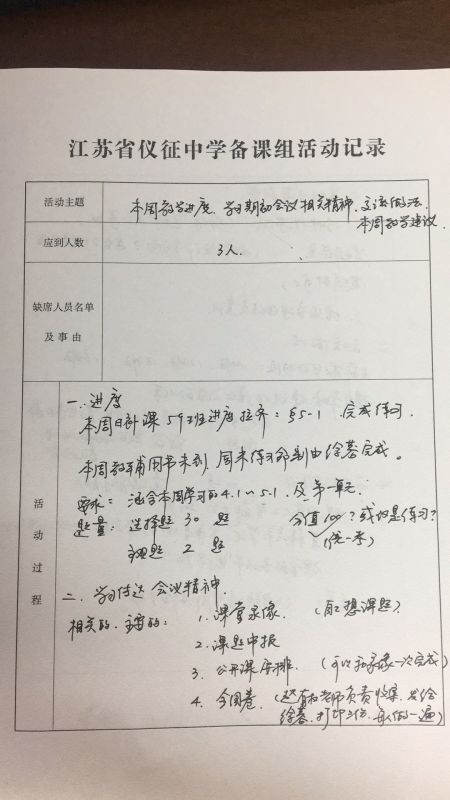 江苏省仪征中学备课组活动记录
活动主题
本周教学进度、学习期初会议相关精神、交流做法、
本周教学建议
应到人数
3人.
缺席人员名单
及事由
活动过程
一. 进度
本周日补课 5个班进度拉齐:§5-1 完成练习.
本周教辅用书未到 周末练习命制由徐 完成。
要求: 涵合本周学习的4.1~5.1. 及第一单元.
题量: 选择题 30 题 分值100?或仅是练习?
主观题 2 题 (统一考)
二. 学习传达会议精神.
相关的.主要的: 1. 课堂录像. (自己想课题)
2. 课题申报
3. 公开课安排. (可以和录像一次完成)
4. 全国卷. ( 老师负责收集、发给
徐 、打印三份、每人做一遍)